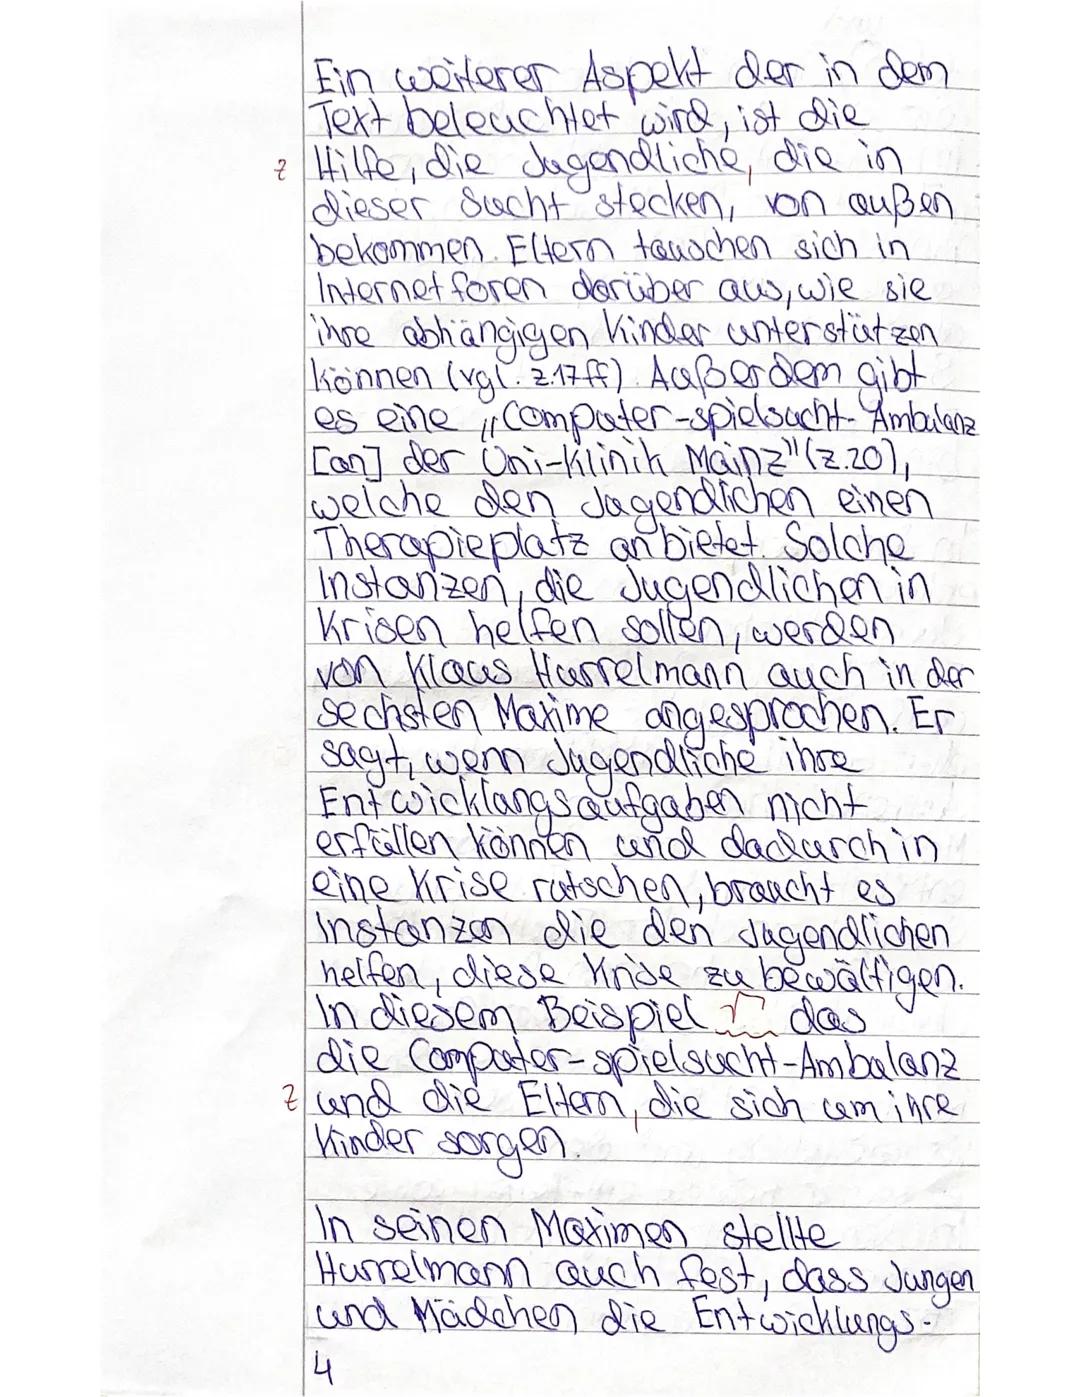 Ein weiterer Aspekt der in dem
Text beleuchtet wird, ist die
z Hilfe, die Jugendliche, die in
dieser Sucht stecken, von außen
bekommen. Eltern tauschen sich in
Internetforen darüber aus, wie sie
ihre abhängigen Kinder unterstützen
können (vgl. z.17ff). Außerdem gibt
es eine „Computer-spielsucht-Ambulanz
[an] der Uni-Klinik Mainz" (z.20),
welche den Jugendlichen einen
Therapieplatz anbietet. Solche
Instanzen, die Jugendlichen in
Krisen helfen sollen, werden
von Klaus Hurrelmann auch in der
sechsten Maxime angesprochen. Er
sagt, wenn Jugendliche ihre
Entwicklungsaufgaben nicht
erfüllen können und dadurch in
eine Krise rutschen, braucht es
Instanzen die den Jugendlichen
helfen, diese Krise zu bewältigen.
In diesem Beispiel √ das
die Computer-spielsucht-Ambulanz
z und die Eltern, die sich um ihre
Kinder sorgen.
In seinen Maximen stellte
Hurrelmann auch fest, dass Jungen
und Mädchen die Entwicklungs-
4